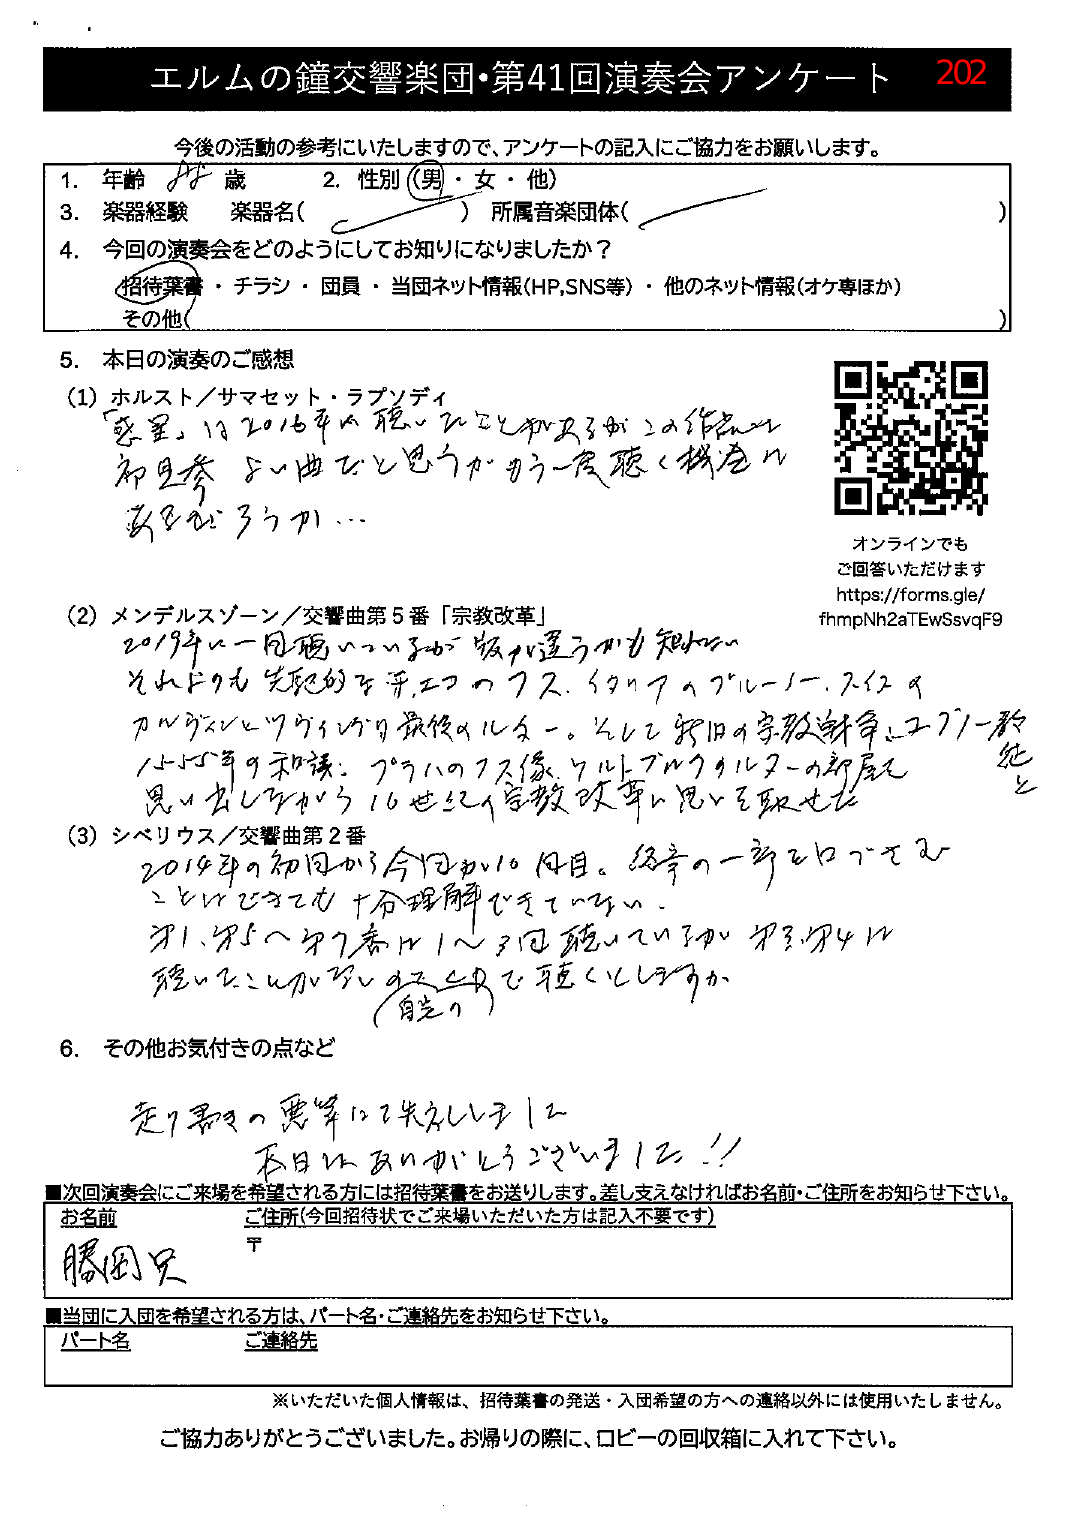 エルムの鐘交響楽団・第41回演奏会アンケート 202
今後の活動の参考にいたしますので、アンケートの記入にご協力をお願いします。
1. 年齢 歳 2. 性別 (男・女・他)
3. 楽器経験 楽器名( ) 所属音楽団体( )
4. 今回の演奏会をどのようにしてお知りになりましたか？
招待葉書 ・ チラシ ・ 団員 ・ 当団ネット情報(HP,SNS等) ・ 他のネット情報(オケ専ほか)
その他( )
5. 本日の演奏のご感想
(1) ホルスト／サマセット・ラプソディ
「惑星」は2016年に聴いたことがあるがこの作品は
初見参 よい曲だと思うがもう一度聴く機会は
あるだろうか…
オンラインでも
ご回答いただけます
https://forms.gle/
fhmpNh2aTEwSsvqF9
(2) メンデルスゾーン／交響曲第5番「宗教改革」
2019年に一回聴いているが版が違うかも知れない
それよりも先駆的なチェコのフス、イタリアのブルーノ、スイスの
カルヴァンとツヴィングリ最後のルター。そして新旧の宗教戦争、
1555年の和議、プラハのフス像、ワルトブルクのルターの部屋を
思い出しながら16世紀の宗教改革に思いを馳せた
(3) シベリウス／交響曲第2番
2014年の初回から今回が10回目。終章の一部を口ずさむ
ことはできても十分理解できていない。
第1、第5〜第7番は1〜3回聴いているが第3、第4は
聴いたことがないの で聴くとしますか
(自宅の)
6. その他お気付きの点など
走り書きの悪筆にて失礼しました
本日はありがとうございました!!
■次回演奏会にご来場を希望される方には招待葉書をお送りします。差し支えなければお名前・ご住所をお知らせ下さい。
お名前 ご住所(今回招待状でご来場いただいた方は記入不要です)
〒
勝岡
■当団に入団を希望される方は、パート名・ご連絡先をお知らせ下さい。
パート名 ご連絡先
※いただいた個人情報は、招待葉書の発送・入団希望の方への連絡以外には使用いたしません。
ご協力ありがとうございました。お帰りの際に、ロビーの回収箱に入れて下さい。